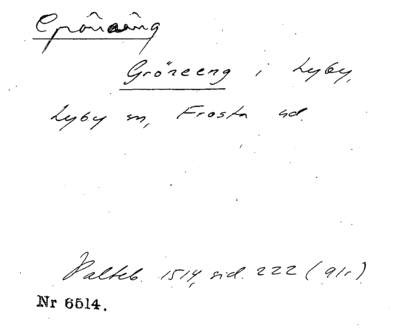 Gröneeng i Lyby,
Lyby sn, Frosta hd.
Palteb. 1514, sid. 222 (91r)
Nr 6514.